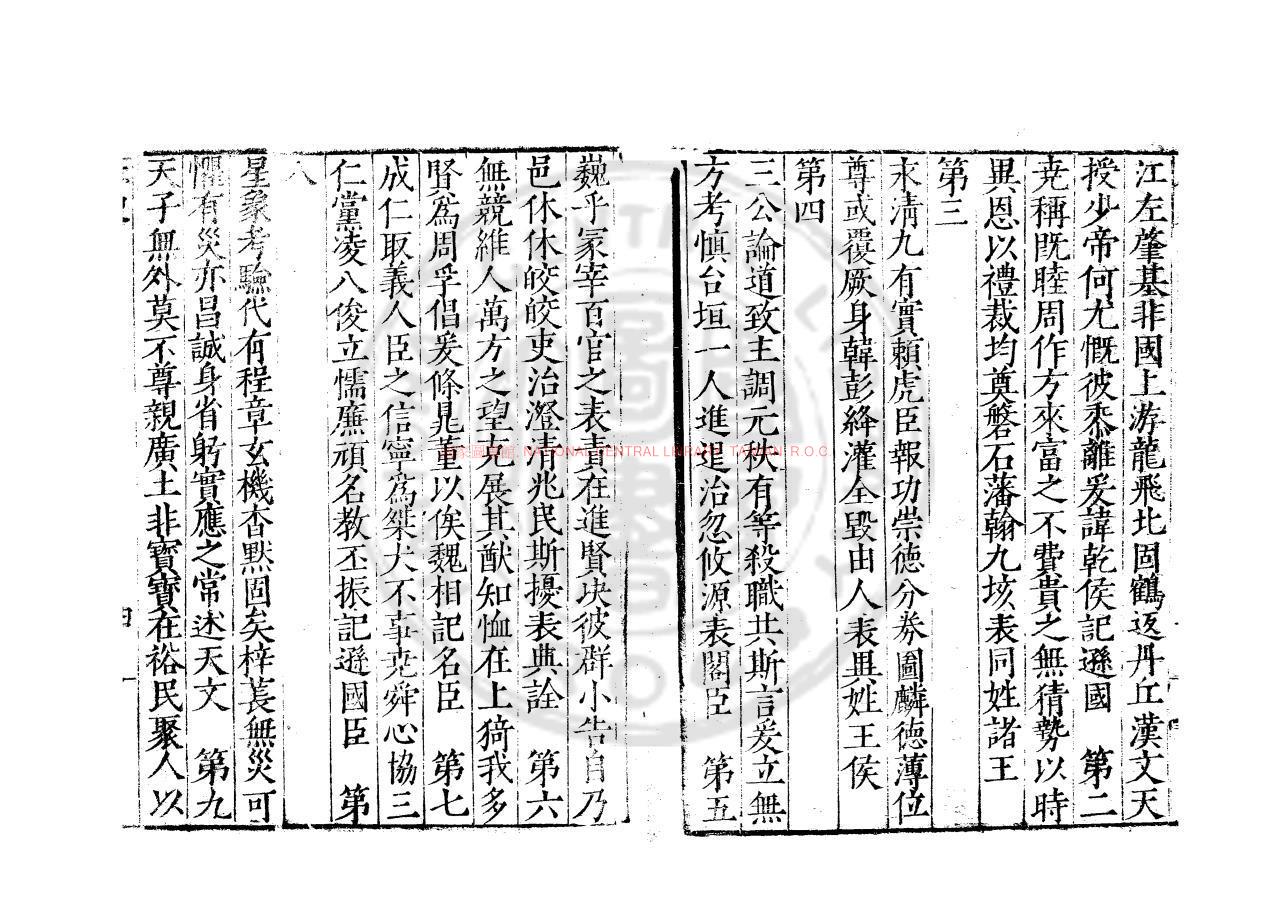 江左肇基非國上游龍飛北固鶴返丹丘漢文天
授少帝何尤慨彼黍離爰諱乾侯記遜國　第二
堯稱既睦周作方來富之不費貴之無猜勢以時
異恩以禮裁均奠磐石藩翰九垓表同姓諸王
第三
永清九有實賴虎臣報功崇德分券圖麟德薄位
尊或覆厥身韓彭絳灌全毀由人表異姓王侯
第四
三公論道致主調元秩有等殺職共斯言爰立無
方考慎台垣一人進退治忽攸源表閣臣　第五
巍乎冢宰百官之表責在進賢玦彼群小告自乃
邑休休皎皎吏治澄清兆民斯擾表典詮　第六
無競維人萬方之望克展其猷知恤在上猗我多
賢為周孚倡爰條晁董以俟魏相記名臣　第七
成仁取義人臣之信寧為桀犬不事堯舜心協三
仁黨凌八俊立懦廉頑名教丕振記遜國臣　第
八
星象考驗代有程章玄機杳默固矣梓萇無災可
懼有災亦昌誠身省躬實應之常述天文　第九
天子無外莫不尊親廣土非寶寶在裕民聚人以
四
國家圖書館, NATIONAL CENTRAL LIBRARY, TAIWAN, R.O.C.